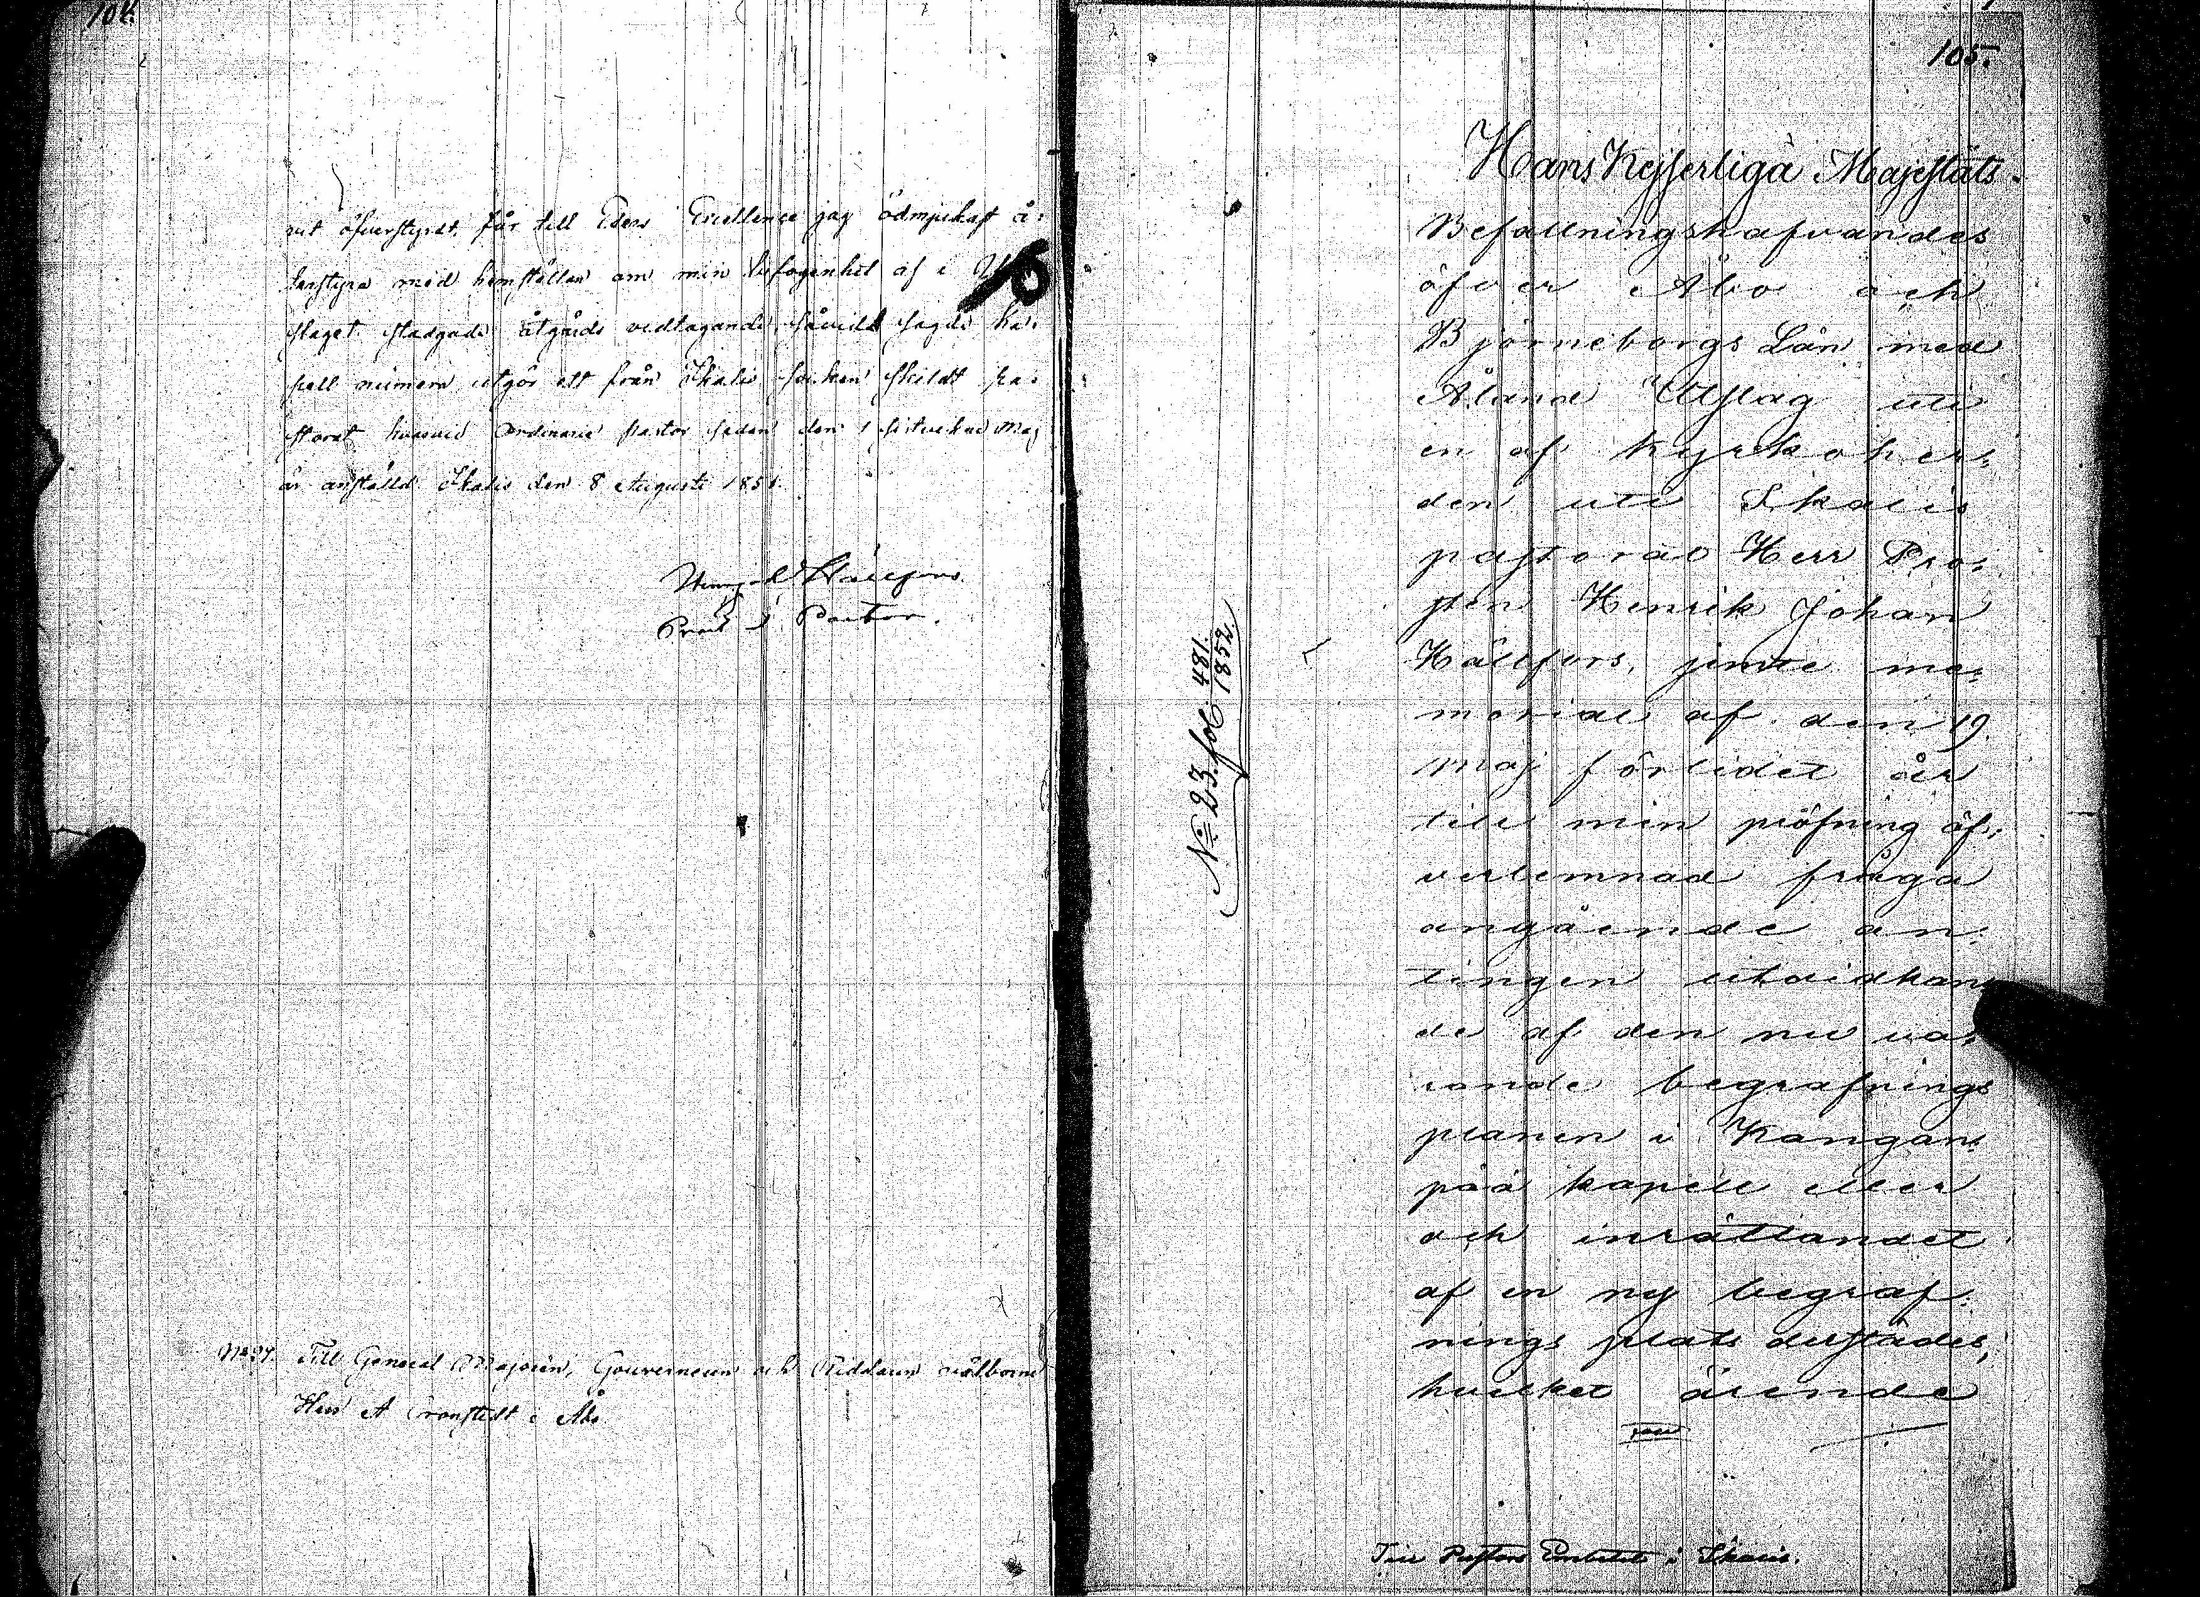 104.
nit öfverstyrdt, får till Eders Excellence jag ödmjukast å-
terstyra med hemställan om min befogenhet af i Ut-
slaget stadgade åtgärds vidtagande, såvidt sagde ka-
pell numera utgör ett från Ikalis socken skildt pa-
storat hvarvid Ordinarie pastor sedan den 1 sistvekne Maj
är anstäld. Ikalis den 8 Augusti 1851.
Hällfors
Prost & Pastor.
Till General Majoren, Gouverneuren och Riddaren välborne
Herr A Cronstedt i Åbo
105.
Hans Kejserliga Majestäts
Befallningshafvandes
öfver Åbo och
Björneborgs Län med
Åland Utslag uti
en af Kyrkoher-
den uti Ikalis
pastorat Herr Pro-
sten Henrik Johan
Hällfors, jemte me-
morial af den 19
Maj förlidet år
till min pröfning öf-
verlemnad fråga
angående an-
tingen utvidkan-
de af den nu va-
rande begrafnings
planen i Kangan-
pää kapell eller
och inrättandet
af en ny begraf-
nings plats derstädes,
hvilket ärende
Till Pastors Embetet i Ikalis.
No 23. fol 481.
1852.